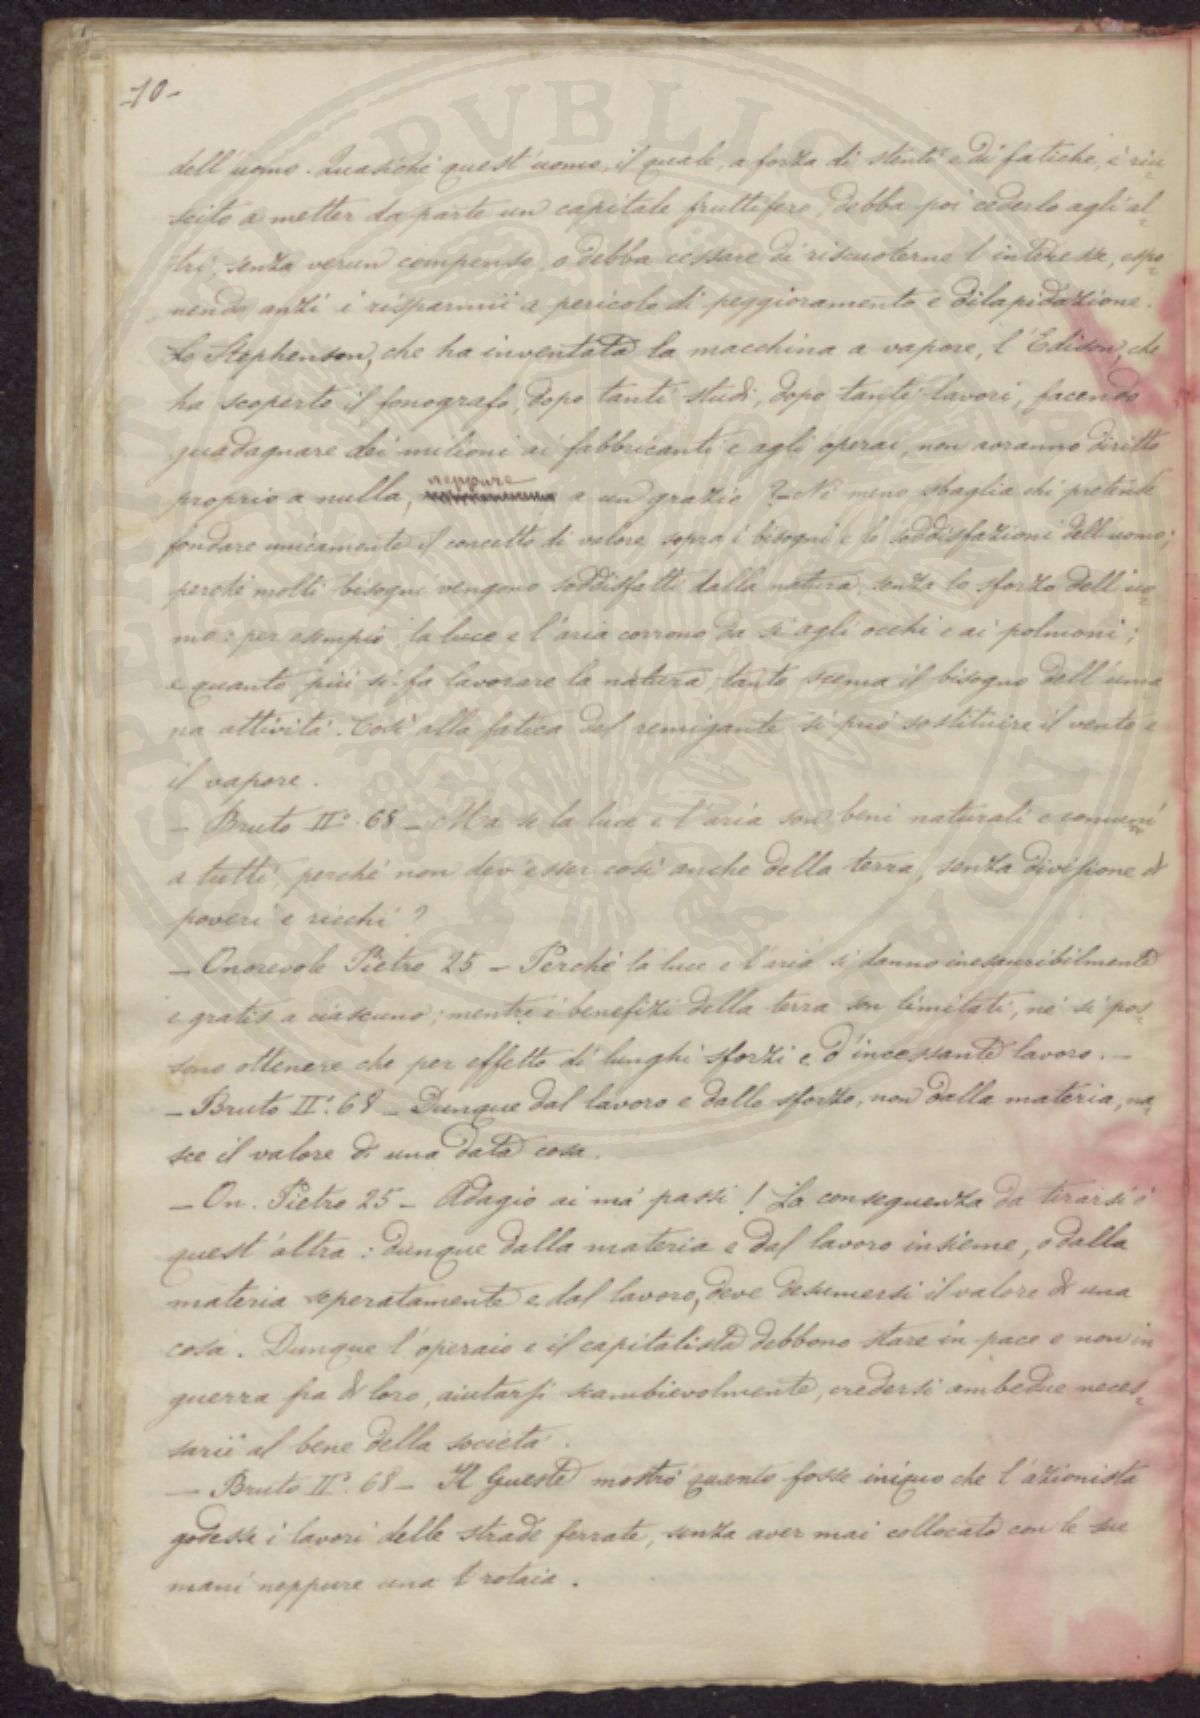 -10-
dell'uomo. Quasiché quest'uomo, il quale, a forza di stenti e di fatiche, è riu-
scito a metter da parte un capitale fruttifero, debba poi cederlo agli al-
tri, senza verun compenso, o debba cessare di riscuoterne l'interesse, espo-
nendo anzi i risparmii a pericolo di peggioramento e dilapidazione.
Lo Stephenson, che ha inventata la macchina a vapore, l'Edison, che
ha scoperto il fonografo, dopo tanti studi, dopo tanti lavori, facendo
guadagnare dei milioni ai fabbricanti e agli operai, non avranno diritto
proprio a nulla, neppure a un grazie? - Né meno sbaglia chi pretende
fondare unicamente il concetto di valore sopra i bisogni e le soddisfazioni dell'uomo;
perché molti bisogni vengono soddisfatti dalla natura, senza lo sforzo dell'uo-
mo: per esempio, la luce e l'aria corrono da sé agli occhi e ai polmoni;
e quanto più si fa lavorare la natura, tanto scema il bisogno dell'uma
na attività. Così alla fatica del remigante si può sostituire il vento e
il vapore.
- Bruto II°. 68 - Ma se la luce e l'aria son beni naturali e comuni
a tutti, perché non dev'esser così anche della terra, senza divisione di
poveri e ricchi?
- Onorevole Pietro 25 - Perché la luce e l'aria si danno inesauribilmente
e gratis a ciascuno; mentre i benefizi della terra son limitati, né si pos-
sono ottenere che per effetto di lunghi sforzi e d'incessante lavoro. -
- Bruto II°. 68 - Dunque dal lavoro e dallo sforzo, non dalla materia, na-
sce il valore di una data cosa.
- On. Pietro 25 - Adagio ai ma' passi! La conseguenza da tirarsi è
quest'altra: dunque dalla materia e dal lavoro insieme, o dalla
materia seperatamente e dal lavoro, deve desumersi il valore di una
cosa. Dunque l'operaio e il capitalista debbono stare in pace e non in
guerra fra di loro, aiutarsi scambievolmente, credersi ambedue neces-
sarii al bene della società.
- Bruto II°. 68 - Il Gueste mostrò quanto fosse iniquo che l'azionista
godesse i lavori delle strade ferrate, senza aver mai collocato con le sue
mani neppure una rotaia.